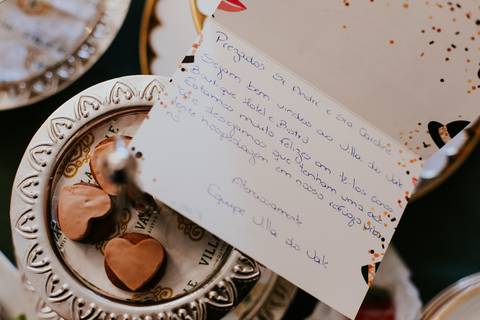 Prezados Sr André e Sra Caroline
Sejam bem vindos ao Villa do Vale
Boutique Hotel e Bistrô
Estamos muito felizes em tê-los conos
co e desejamos que tenham uma óti
hospedagem em nosso refúgio
Atenciosamente
Equipe Villa do Vale
VILLA
VILLE